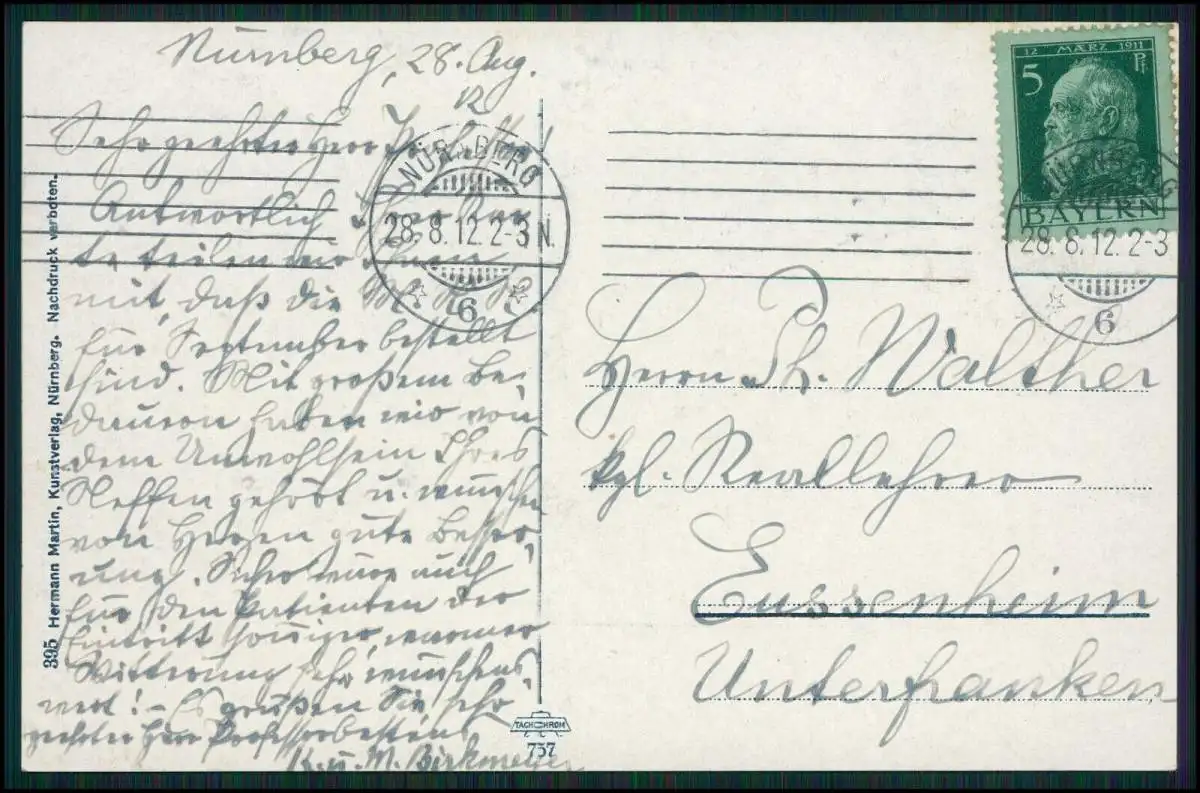 Nürnberg, 28. Aug.
12
Sehr geehrter Herr
Antwortlich Ihrer Kar-
te teilen wir Ihnen
mit, daß die
für September bestellt
sind. Mit großem Be-
dauern haben wir von
dem Unwohlsein Ihres
Neffen gehört u. wünschen
von Herzen gute Besser-
ung. Sicher wäre auch
für den Patienten der
Eintritt sonniger, warmer
Witterung sehr wünschens-
wert! - Es grüßen Sie, sehr
geehrter Herr Professor bestens
K. u. M. Birkmeyer
NÜRNBERG
28. 8. 12. 2-3 N.
6
395 Hermann Martin, Kunstverlag, Nürnberg. Nachdruck verboten.
TACHOCHROM
737
12 MÄRZ 1911
5 Pf
BAYERN
NÜRNBERG
28. 8. 12. 2-3
6
Herrn Ph. Walther
kgl. Reallehrer
Eussenheim
Unterfranken